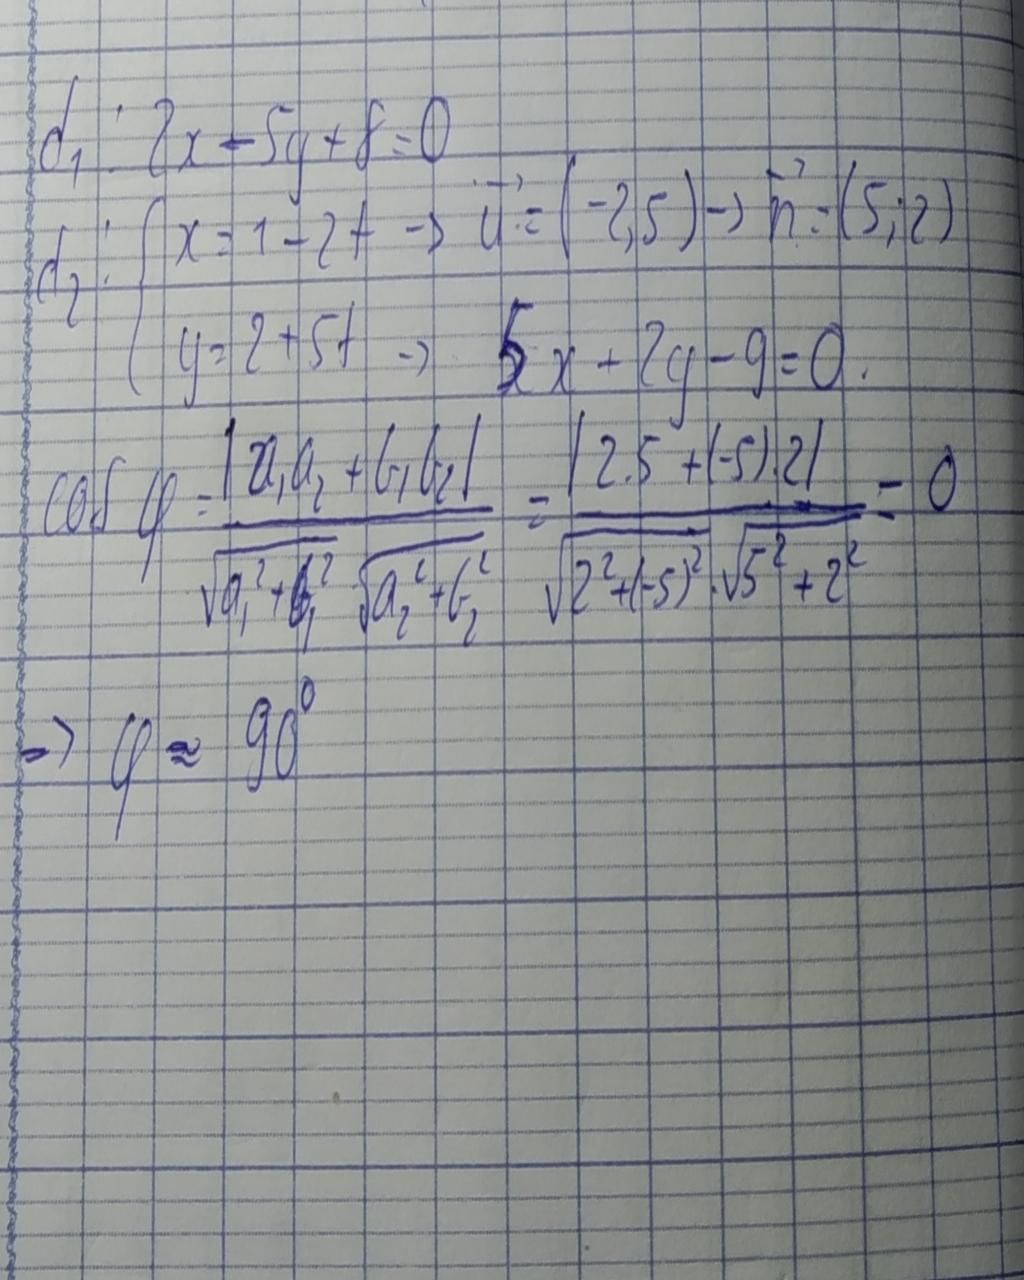 d₁: 2x - 5y + 8 = 0
d₂: { x = 1 - 2t → u⃗ = (-2, 5) → n⃗ = (5; 2)
y = 2 + 5t → 5x + 2y - 9 = 0.
cos φ = |a₁a₂ + b₁b₂| / √a₁² + b₁² √a₂² + b₂² = |2.5 + (-5).2| / √2² + (-5)² . √5² + 2² = 0
=> φ ≈ 90⁰